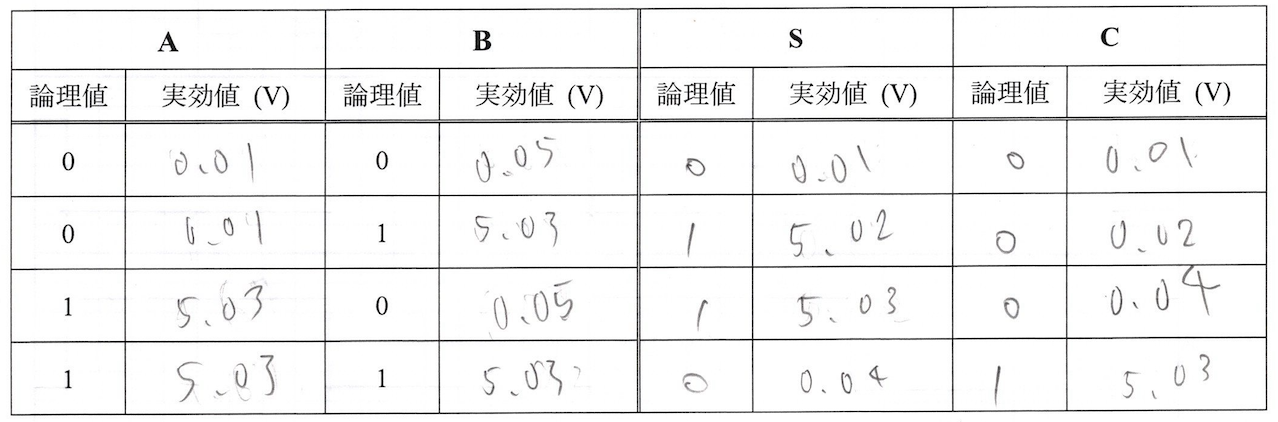 A B S C
論理値 実効値 (V) 論理値 実効値 (V) 論理値 実効値 (V) 論理値 実効値 (V)
0 0.01 0 0.05 0 0.01 0 0.01
0 0.01 1 5.03 1 5.02 0 0.02
1 5.03 0 0.05 1 5.03 0 0.04
1 5.03 1 5.03 0 0.04 1 5.03